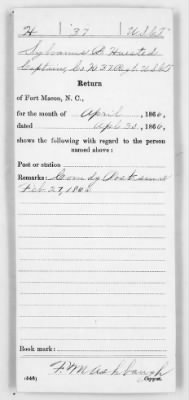 H 37 U.S.C.T.
Sylvanus D. Huested
Captain, Co. H, 37 Reg't U.S.C.T.
Return
of Fort Macon, N. C.,
for the month of April, 1866,
dated Apl 30, 1866,
shows the following with regard to the person
named above:
Post or station
Remarks: Comdg Post since
Feb 27, 1866
Book mark:
(448) Copyist.